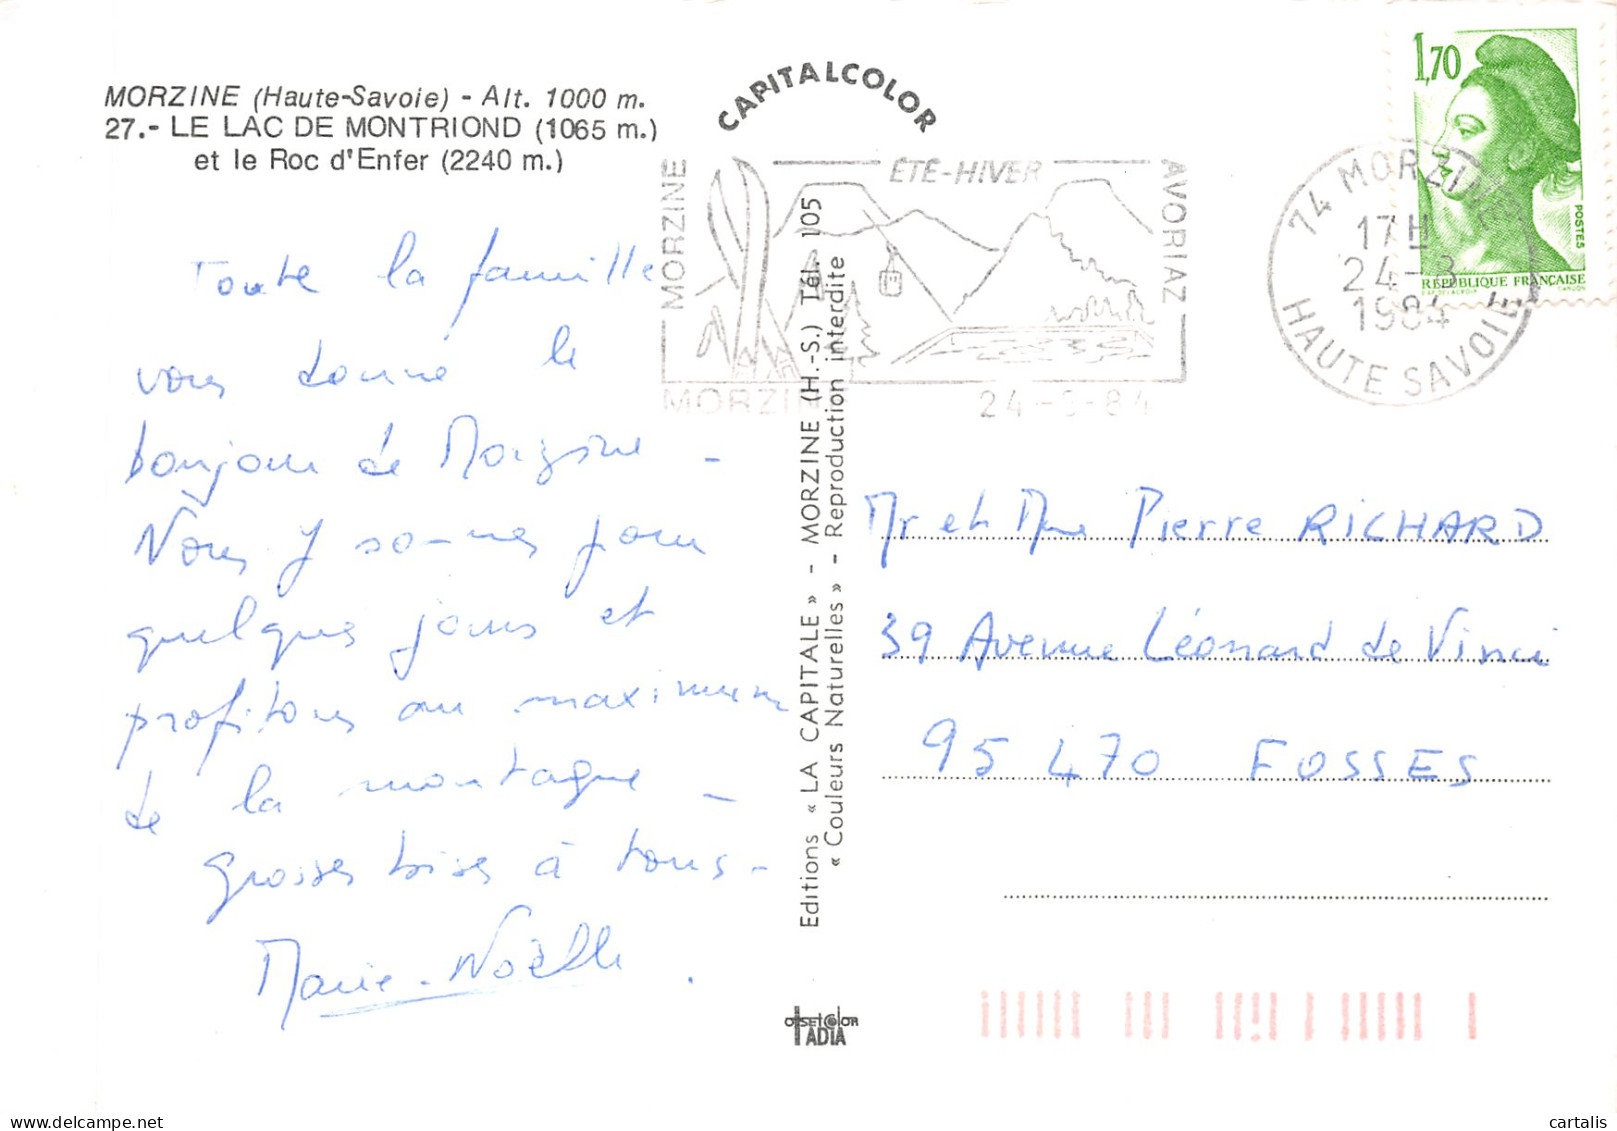 MORZINE (Haute-Savoie) - Alt. 1000 m.
27.- LE LAC DE MONTRIOND (1065 m.)
et le Roc d'Enfer (2240 m.)
CAPITALCOLOR
1,70
POSTES
RÉPUBLIQUE FRANÇAISE
MORZINE
ÉTÉ-HIVER
AVORIAZ
MORZINE
24-3-84
74 MORZINE
17H
24-3
1984
HAUTE SAVOIE
Toute la famille
vous donne le
bonjour de Morzine -
Nous y sommes pour
quelques jours et
profitons au maximum
de la montagne -
grosses bises à tous -
Marie-Noëlle.
Editions « LA CAPITALE » - MORZINE (H.-S.) Tél. 105
« Couleurs Naturelles » - Reproduction interdite
Mr et Mme Pierre RICHARD
39 Avenue Léonard de Vinci
95 470 FOSSES
OFFSETCOLOR
IADIA
cartalis
www.delcampe.net